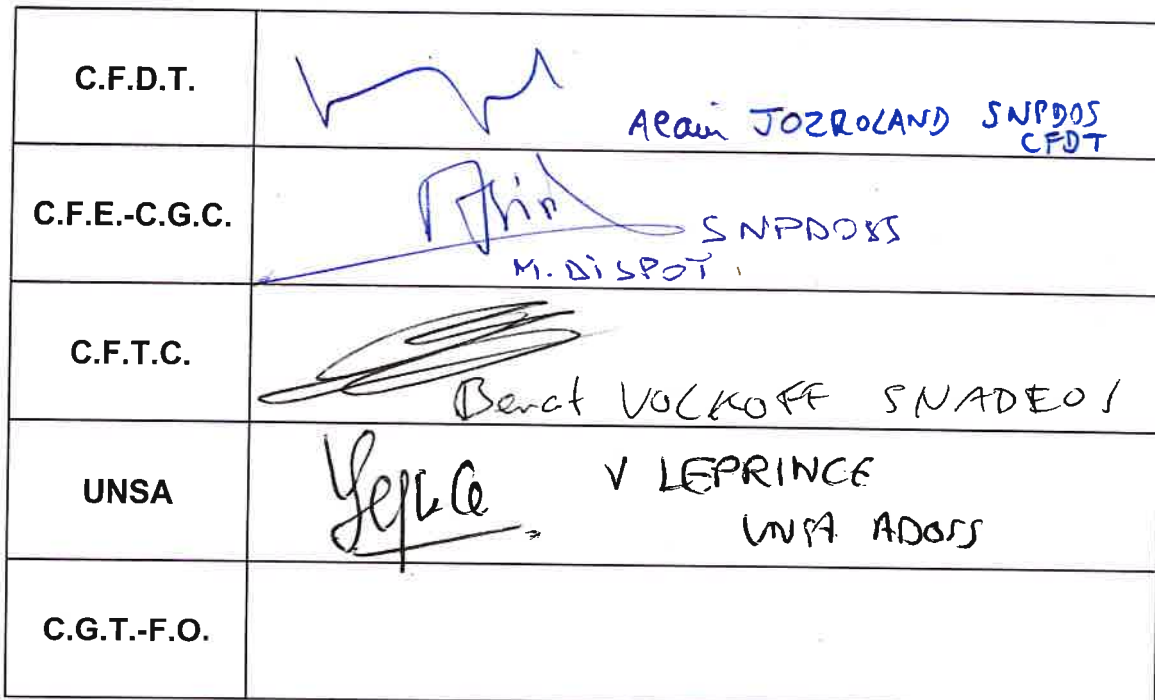 C.F.D.T.
Alain JOZROLAND SNPDOS
CFDT
C.F.E.-C.G.C.
SNPDOSS
M. DISPOT
C.F.T.C.
Benat VOLKOFF SNADEOS
UNSA
V LEPRINCE
UNSA ADOSS
C.G.T.-F.O.